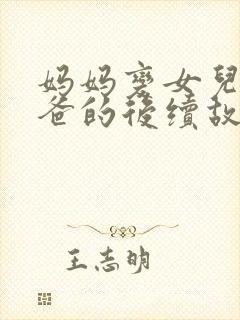 妈妈变女兒
爸的後續故
王志明